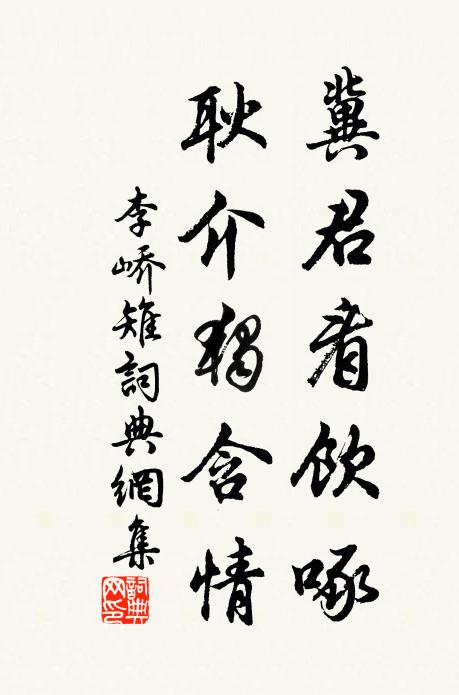 冀君看飲啄
耿介獨含情
李嶠雉詞典網集
詞典网印